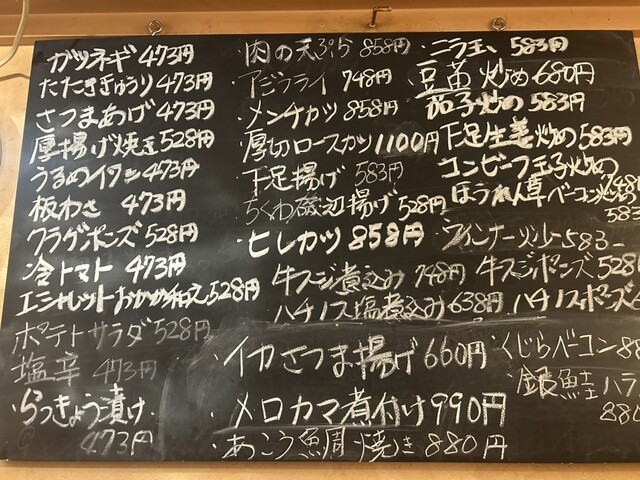 ガツネギ 473円
たたききゅうり 473円
さつまあげ 473円
厚揚げ焼き 528円
うるめイワシ 473円
板わさ 473円
クラゲポンズ 528円
冷トマト 473円
エシャレットおかか和え 528円
ポテトサラダ 528円
塩辛 473円
・らっきょう漬け
473円
・肉の天ぷら 858円
・アジフライ 748円
・メンチカツ 858円
・厚切ロースカツ 1100円
・下足揚げ 583円
・ちくわ磯辺揚げ 528円
・ヒレカツ 858円
・牛スジ煮込み 748円
・ハチノス塩煮込み 638円
・イカさつま揚げ 660円
・メロカマ煮付け 990円
・あこう鯛焼き 880円
・ニラ玉、583円
豆苗炒め 680円
茄子炒め 583円
下足生姜炒め 583円
コンビーフ玉子炒め
ほうれん草ベーコン炒め
583
・ウインナー炒め 583
牛スジポンズ 528
ハチノスポンズ
・くじらベーコン 88
・銀鮭ハラ
880